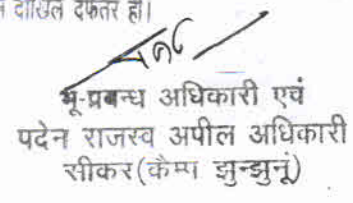 दाखिल दफ्तर हो।
भू-प्रबन्ध अधिकारी एवं
पदेन राजस्व अपील अधिकारी
सीकर(कैम्प झुन्झुनूं)